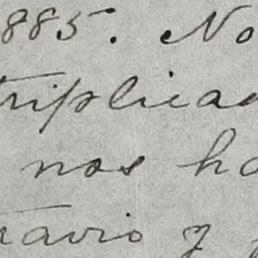 885. No
triplica
nos ha
ravio y